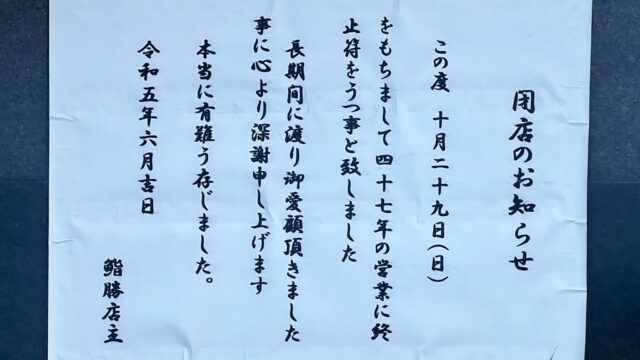 閉店のお知らせ
この度 十月二十九日(日)
をもちまして四十七年の営業に終
止符をうつ事と致しました
長期間に渡り御愛顧頂きました
事に心より深謝申し上げます
本当に有難う存じました。
令和五年六月吉日
鮨勝店主